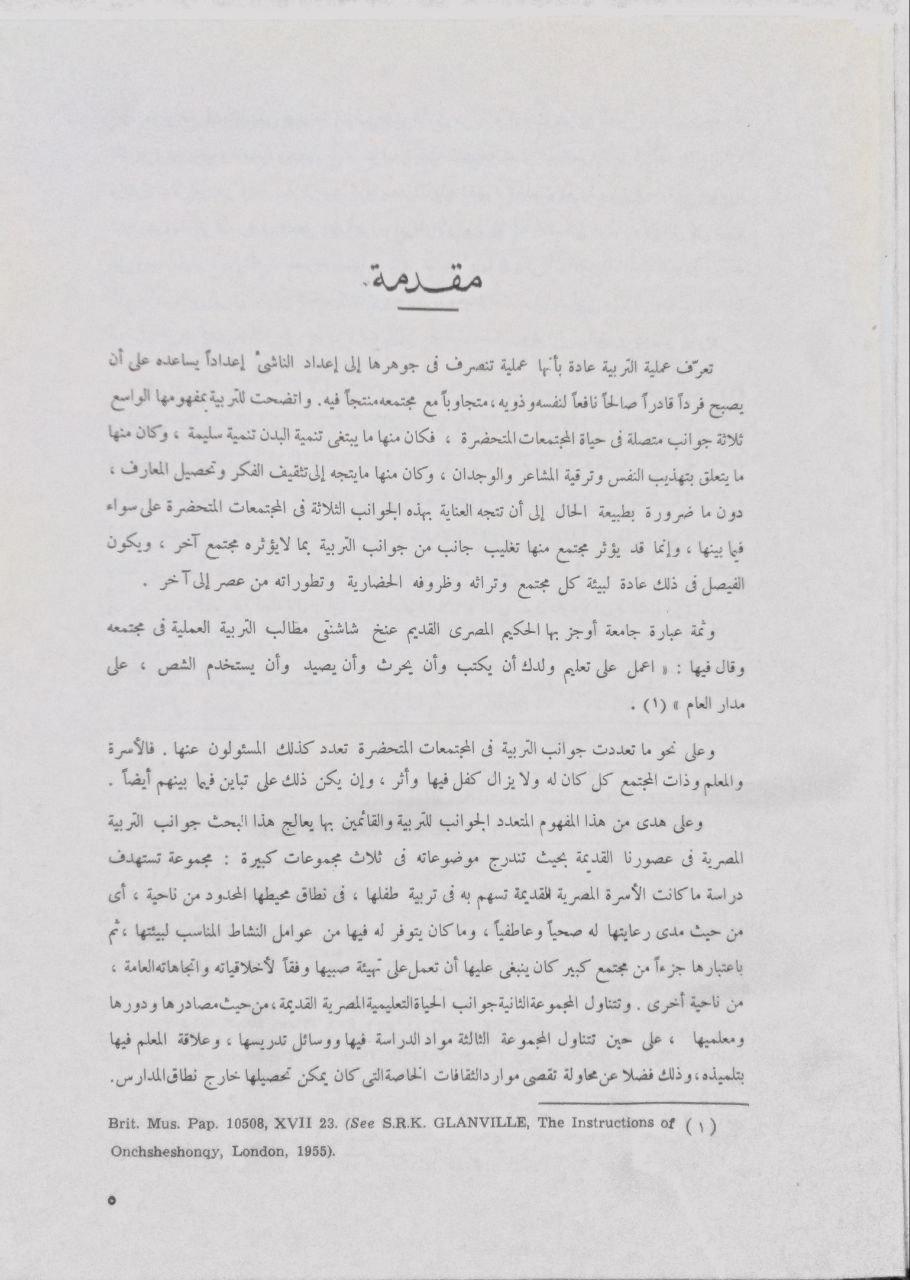 مقدمة
تعرّف عملية التربية عادة بأنها عملية تنصرف فى جوهرها إلى إعداد الناشئ إعداداً يساعده على أن
يصبح فرداً قادراً صالحاً نافعاً لنفسه وذويه، متجاوباً مع مجتمعه منتجاً فيه. واتضحت للتربية بمفهومها الواسع
ثلاثة جوانب متصلة فى حياة المجتمعات المتحضرة ، فكان منها ما يبتغى تنمية البدن تنمية سليمة ، وكان منها
ما يتعلق بتهذيب النفس وترقية المشاعر والوجدان ، وكان منها مايتجه إلى تثقيف الفكر وتحصيل المعارف ،
دون ما ضرورة بطبيعة الحال إلى أن تتجه العناية بهذه الجوانب الثلاثة فى المجتمعات المتحضرة على سواء
فيما بينها ، وإنما قد يؤثر مجتمع منها تغليب جانب من جوانب التربية بما لايؤثره مجتمع آخر ، ويكون
الفيصل فى ذلك عادة لبيئة كل مجتمع وتراثه وظروفه الحضارية وتطوراته من عصر إلى آخر .
وثمة عبارة جامعة أوجز بها الحكيم المصرى القديم عنخ شاشنقى مطالب التربية العملية فى مجتمعه
وقال فيها : « اعمل على تعليم ولدك أن يكتب وأن يحرث وأن يصيد وأن يستخدم الشص ، على
مدار العام » (١) .
وعلى نحو ما تعددت جوانب التربية فى المجتمعات المتحضرة تعدد كذلك المسئولون عنها . فالأسرة
والمعلم وذات المجتمع كل كان له ولا يزال كفل فيها وأثر ، وإن يكن ذلك على تباين فيما بينهم أيضاً .
وعلى هدى من هذا المفهوم المتعدد الجوانب للتربية والقائمين بها يعالج هذا البحث جوانب التربية
المصرية فى عصورنا القديمة بحيث تندرج موضوعاته فى ثلاث مجموعات كبيرة : مجموعة تستهدف
دراسة ما كانت الأسرة المصرية القديمة تسهم به فى تربية طفلها ، فى نطاق محيطها المحدود من ناحية ، أى
من حيث مدى رعايتها له صحياً وعاطفياً ، وما كان يتوفر له فيها من عوامل النشاط المناسب لبيئتها ، ثم
باعتبارها جزءاً من مجتمع كبير كان ينبغى عليها أن تعمل على تهيئة صبيها وفقاً لأخلاقياته واتجاهاته العامة ،
من ناحية أخرى . وتتناول المجموعة الثانية جوانب الحياة التعليمية المصرية القديمة ، من حيث مصادرها ودورها
ومعلميها ، على حين تتناول المجموعة الثالثة مواد الدراسة فيها ووسائل تدريسها ، وعلاقة المعلم فيها
بتلميذه ، وذلك فضلا عن محاولة تقصى موارد الثقافات الخاصة التى كان يمكن تحصيلها خارج نطاق المدارس.
(١) Brit. Mus. Pap. 10508, XVII 23. (See S.R.K. GLANVILLE, The Instructions of
Onchsheshonqy, London, 1955).
٥